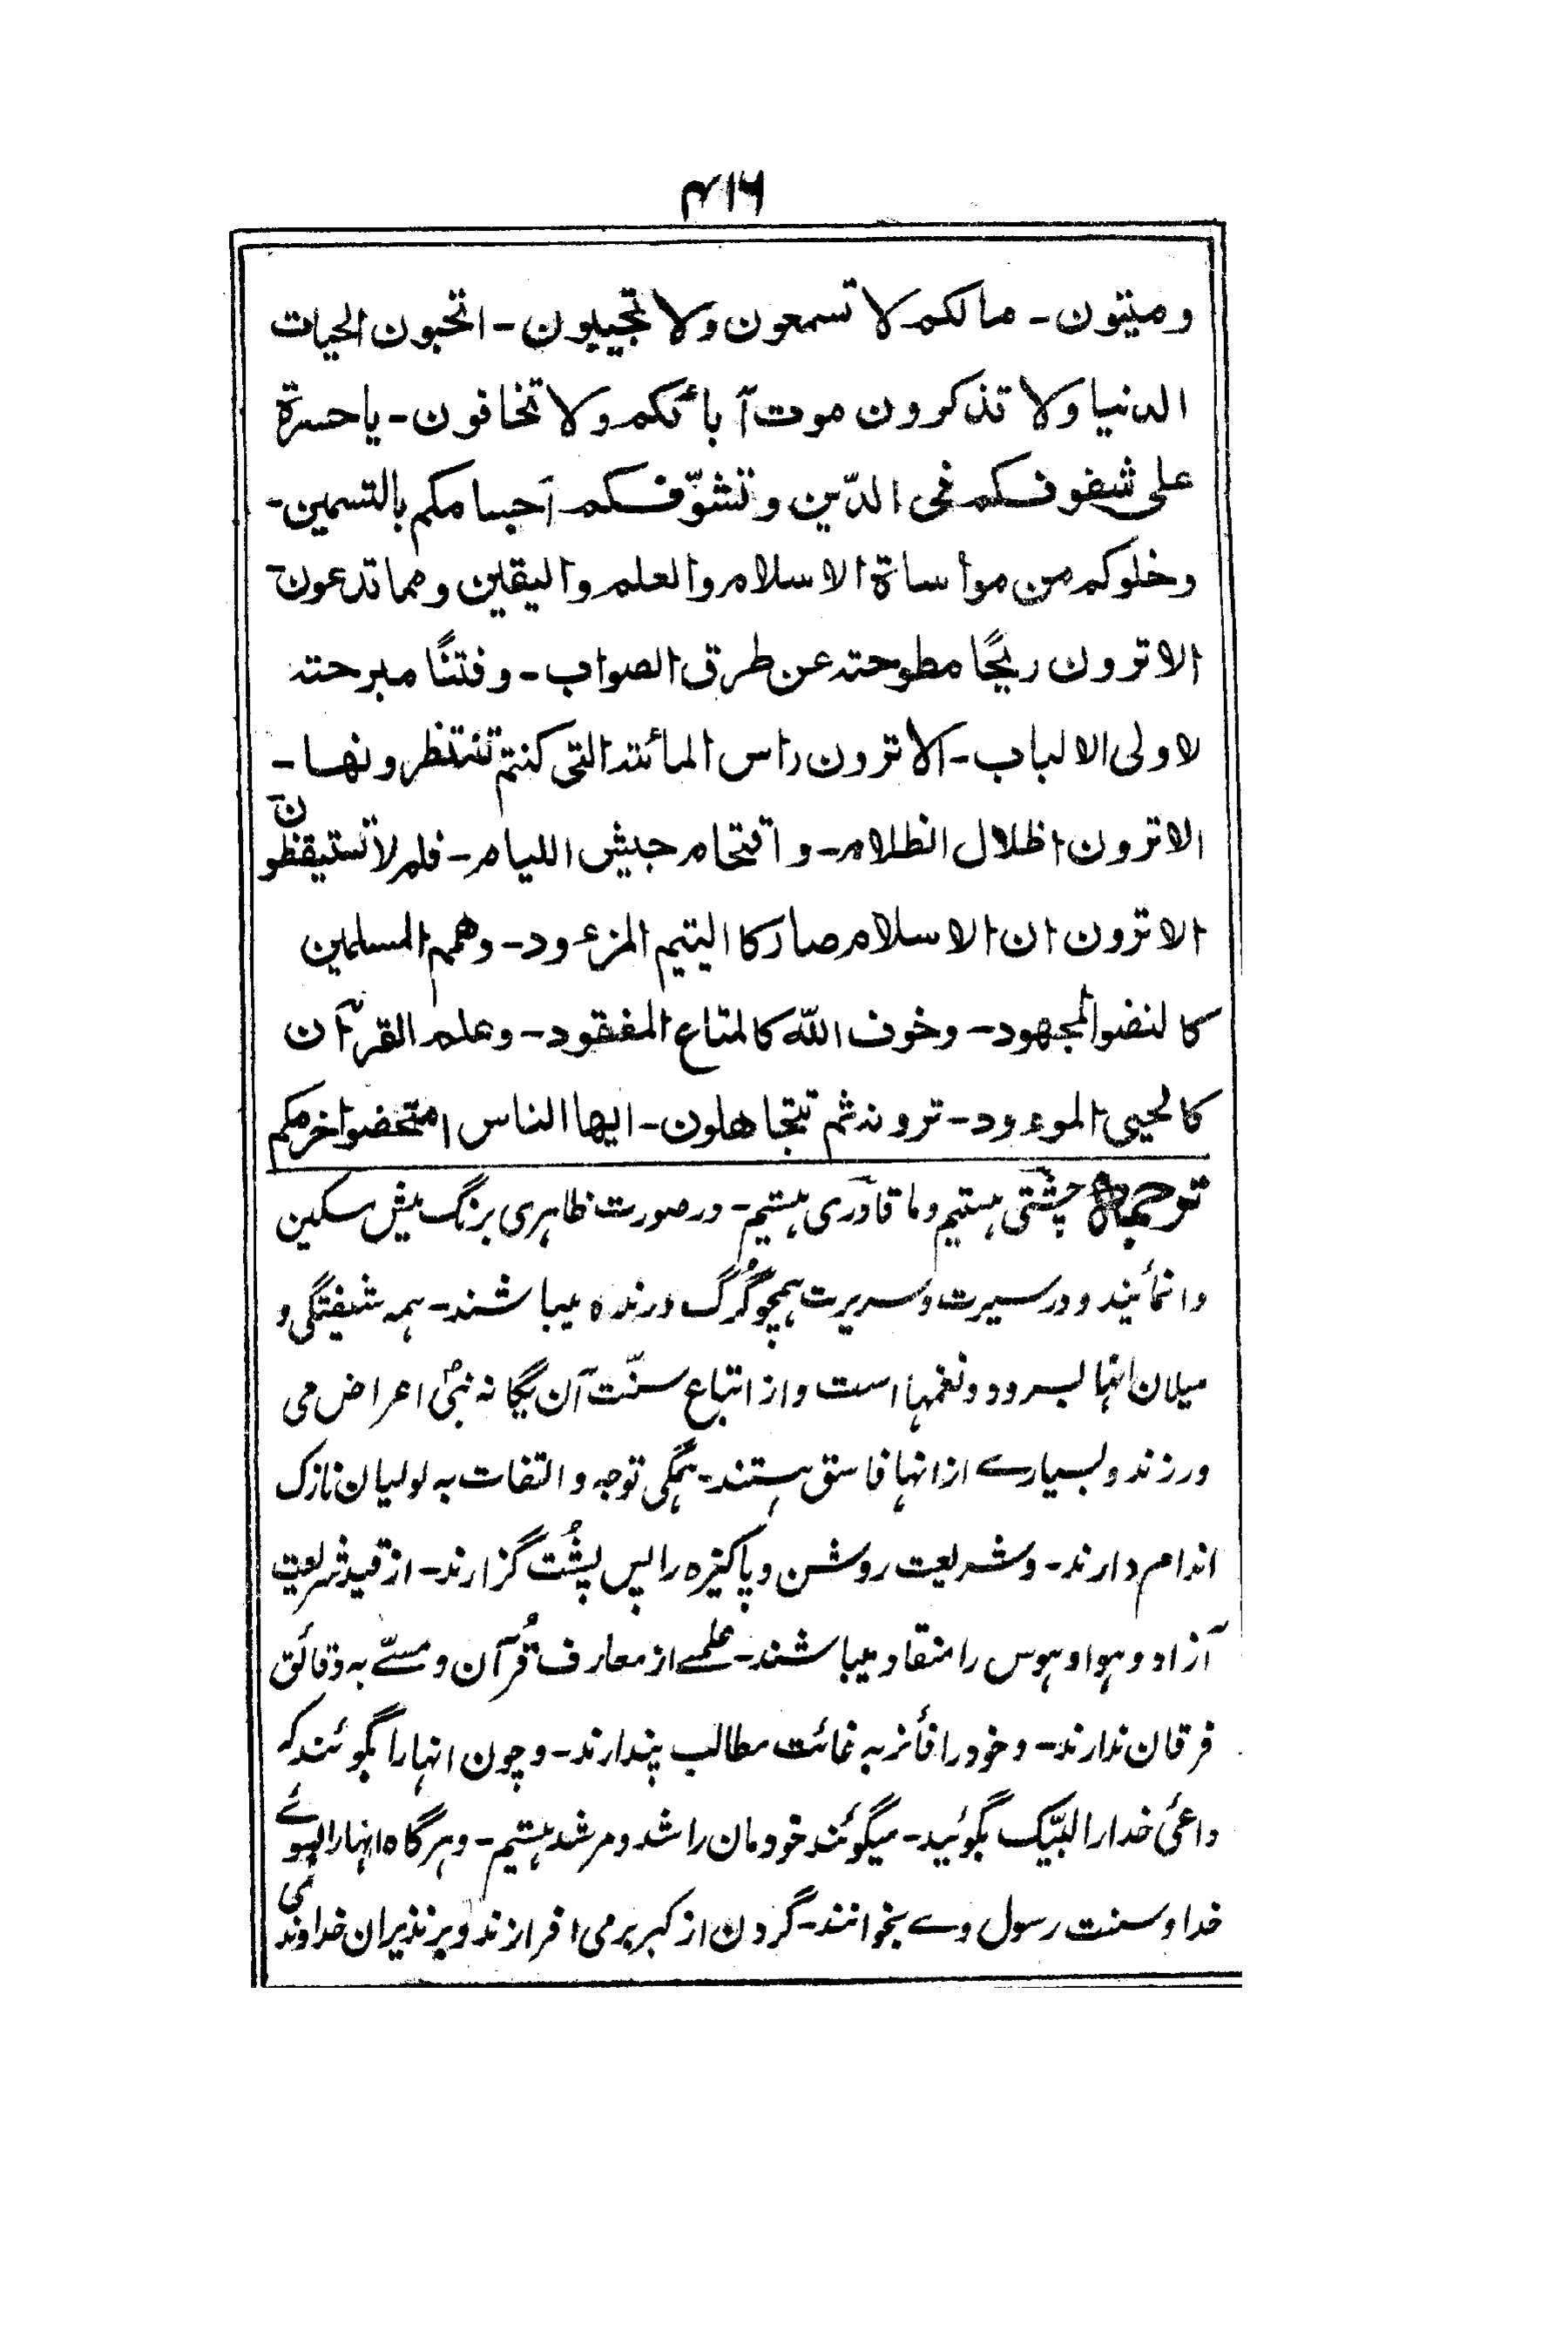 ۴۱۶
وميتون - مالكم لا تسمعون ولا تجيبون - اتحبون الحيات
الدنيا ولا تذكرون موت آبائكم ولا تخافون - يا حسرة
على شفوفكم فى الدّين وتشوّفكم اجسامكم بالتسمين -
وخلوكم من مواساة الاسلام والعلم واليقين ومما تدعون
الا ترون ريحًا مطوحته عن طرق الصواب - وفتنًا مبرحته
لاولى الالباب - الا ترون راس المائته التى كنتم تنتظرونها -
الا ترون اظلال الظلام - واقتحام جيش الليام - فلم لا تستيقظون
الا ترون ان الاسلام صار كاليتيم المزءود - وهمم المسلمين
كالنضو المجهود - وخوف الله كالمتاع المفقود - وعلم القرآن
كالحيى الموءود - ترونه ثم تتجاهلون - ايها الناس امتحضوا خرمكم
ترجمه چشتی ہستیم وما قادری ہستیم - در صورت ظاہری برنگ میش مسکین
وانمائیند و در سیرت و سریرت ہمچو گُرگ درنده میباشند - ہمہ شیفتگی و
میلان انہا بسرود و نغمہا است و از اتباع سنّت آن یگانہ نبیؐ اعراض می
ورزند و بسیارے از انہا فاسق ہستند - ہمگی توجہ و التفات بہ لولیان نازک
اندام دارند - و شریعت روشن و پاکیزہ را پس پُشت گزارند - از قید شریعت
آزاد و ہوا و ہوس را منقاد میباشند - علمے از معارف قُرآن و مسّے بہ دقائق
فرقان ندارند - و خود را فائز بہ غائت مطالب پندارند - و چون انہا را بگوئند کہ
داعئ خدا را لبّیک بگوئید - میگوئند خود مان راشد و مرشد ہستیم - و ہرگاہ انہا را بسوئے
خدا و سنت رسول وے بخوانند - گردن از کبر برمی افرازند و بر نذیران خداوندی